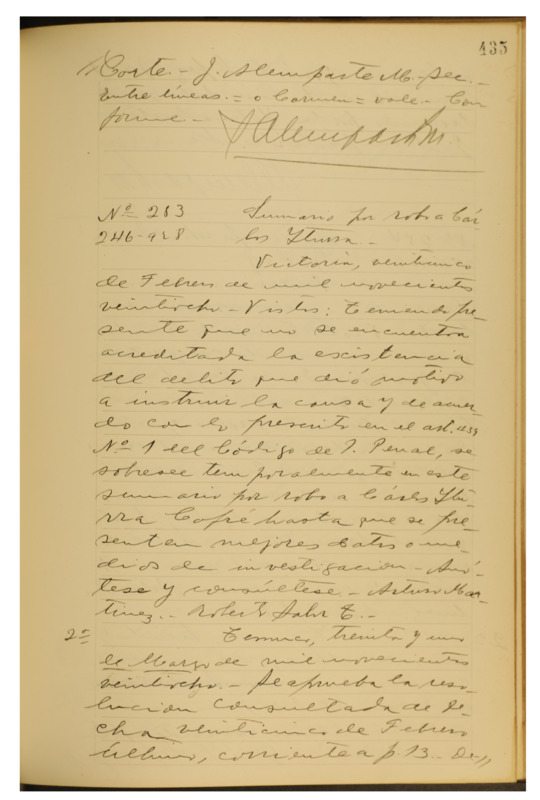 435
Corte.- J. Alemparte M. Sec.-
Entre líneas.= o Carmen = vale.- Con
forme.-
JAlemparte M.
Nº 283
Sumario por robo a Cár
246-928
los Yturra.-
Victoria, veinticinco
de Febrero de mil novecientos
veintiocho.- Vistos: Teniendo pre-
sente que no se encuentra
acreditada la escistencia
del delito que dió motivo
a instruir la causa y de acuer-
do con lo prescrito en el art. 439
Nº 1 del Código de P. Penal, se
sobresee temporalmente en este
sumario por robo a Cárlos Ytu-
rra Cofré hasta que se pre-
senten mejores datos o me-
dios de investigación.- Anó-
tese y consúltese.- Arturo Mar-
tinez.- Roberto T.-
2º
Temuco, treinta y uno
de Marzo de mil novecientos
veintiocho.- Se aprueba la reso-
lución consultada de fe-
cha veinticinco de Febrero
último, corriente a f. 13.- De-